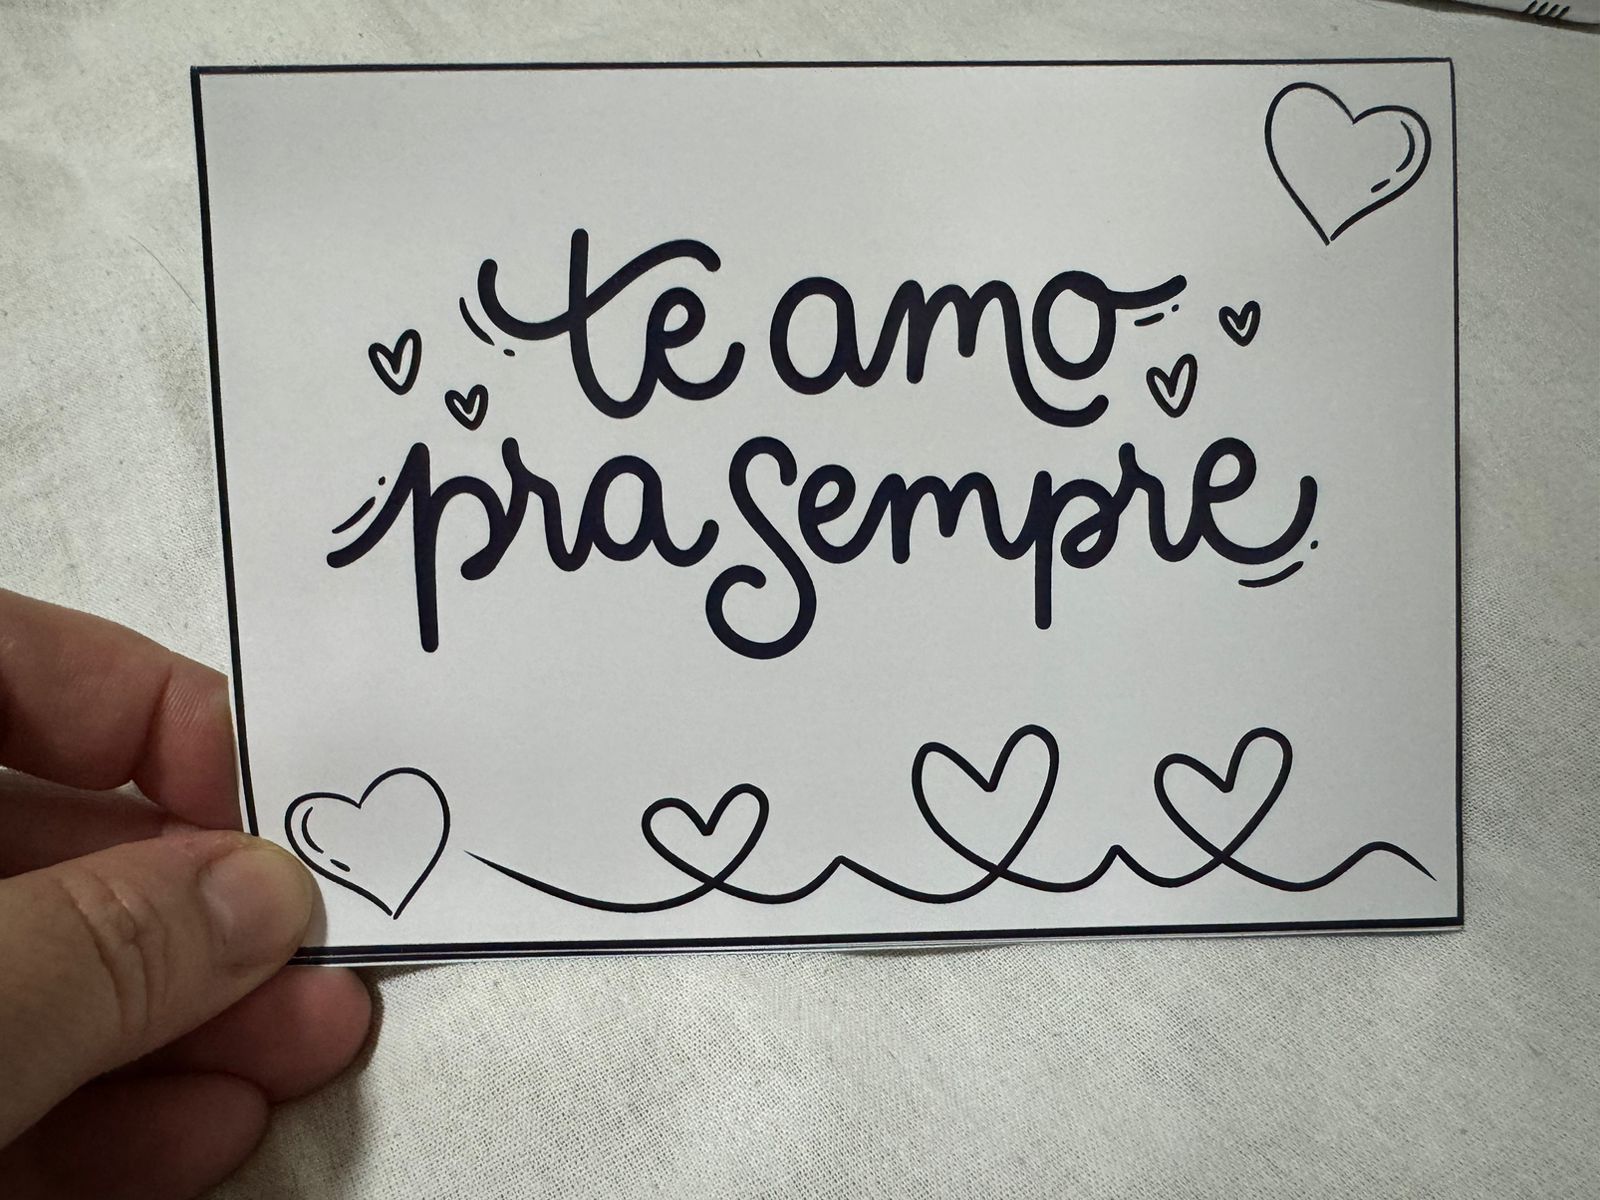 te amo
pra sempre